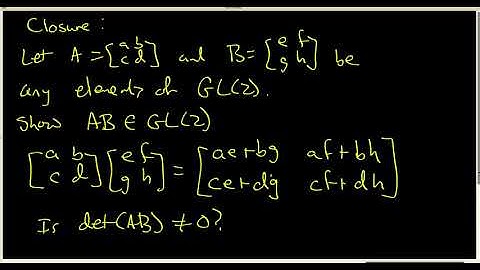 Closure:
Let A = [a b c d] and B = [e f g h] be
any elements of GL(2).
Show AB ∈ GL(2)
[a b c d] [e f g h] = [ae+bg af+bh ce+dg cf+dh]
Is det(AB) ≠ 0?